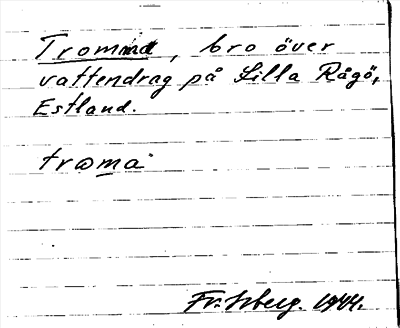 Trommd, bro över
vattendrag på Lilla Rågö,
Estland.
troma
1944.